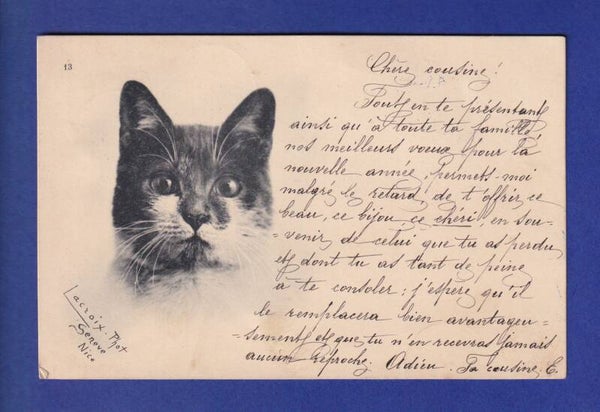 13
Chère cousine!
Tout en te présentant
ainsi qu'à toute ta famille,
nos meilleurs vœux pour la
nouvelle année, permets-moi
malgré le retard, de t'offrir ce
beau, ce bijou ce chéri, en sou-
venir de celui que tu as perdu
et dont tu as tant de peine
à te consoler; j'espère qu'il
le remplacera bien avantageu-
sement et que tu n'en recevras jamais
aucun reproche. Adieu. Ta cousine E.
Lacroix. Phot
Genève
Nice